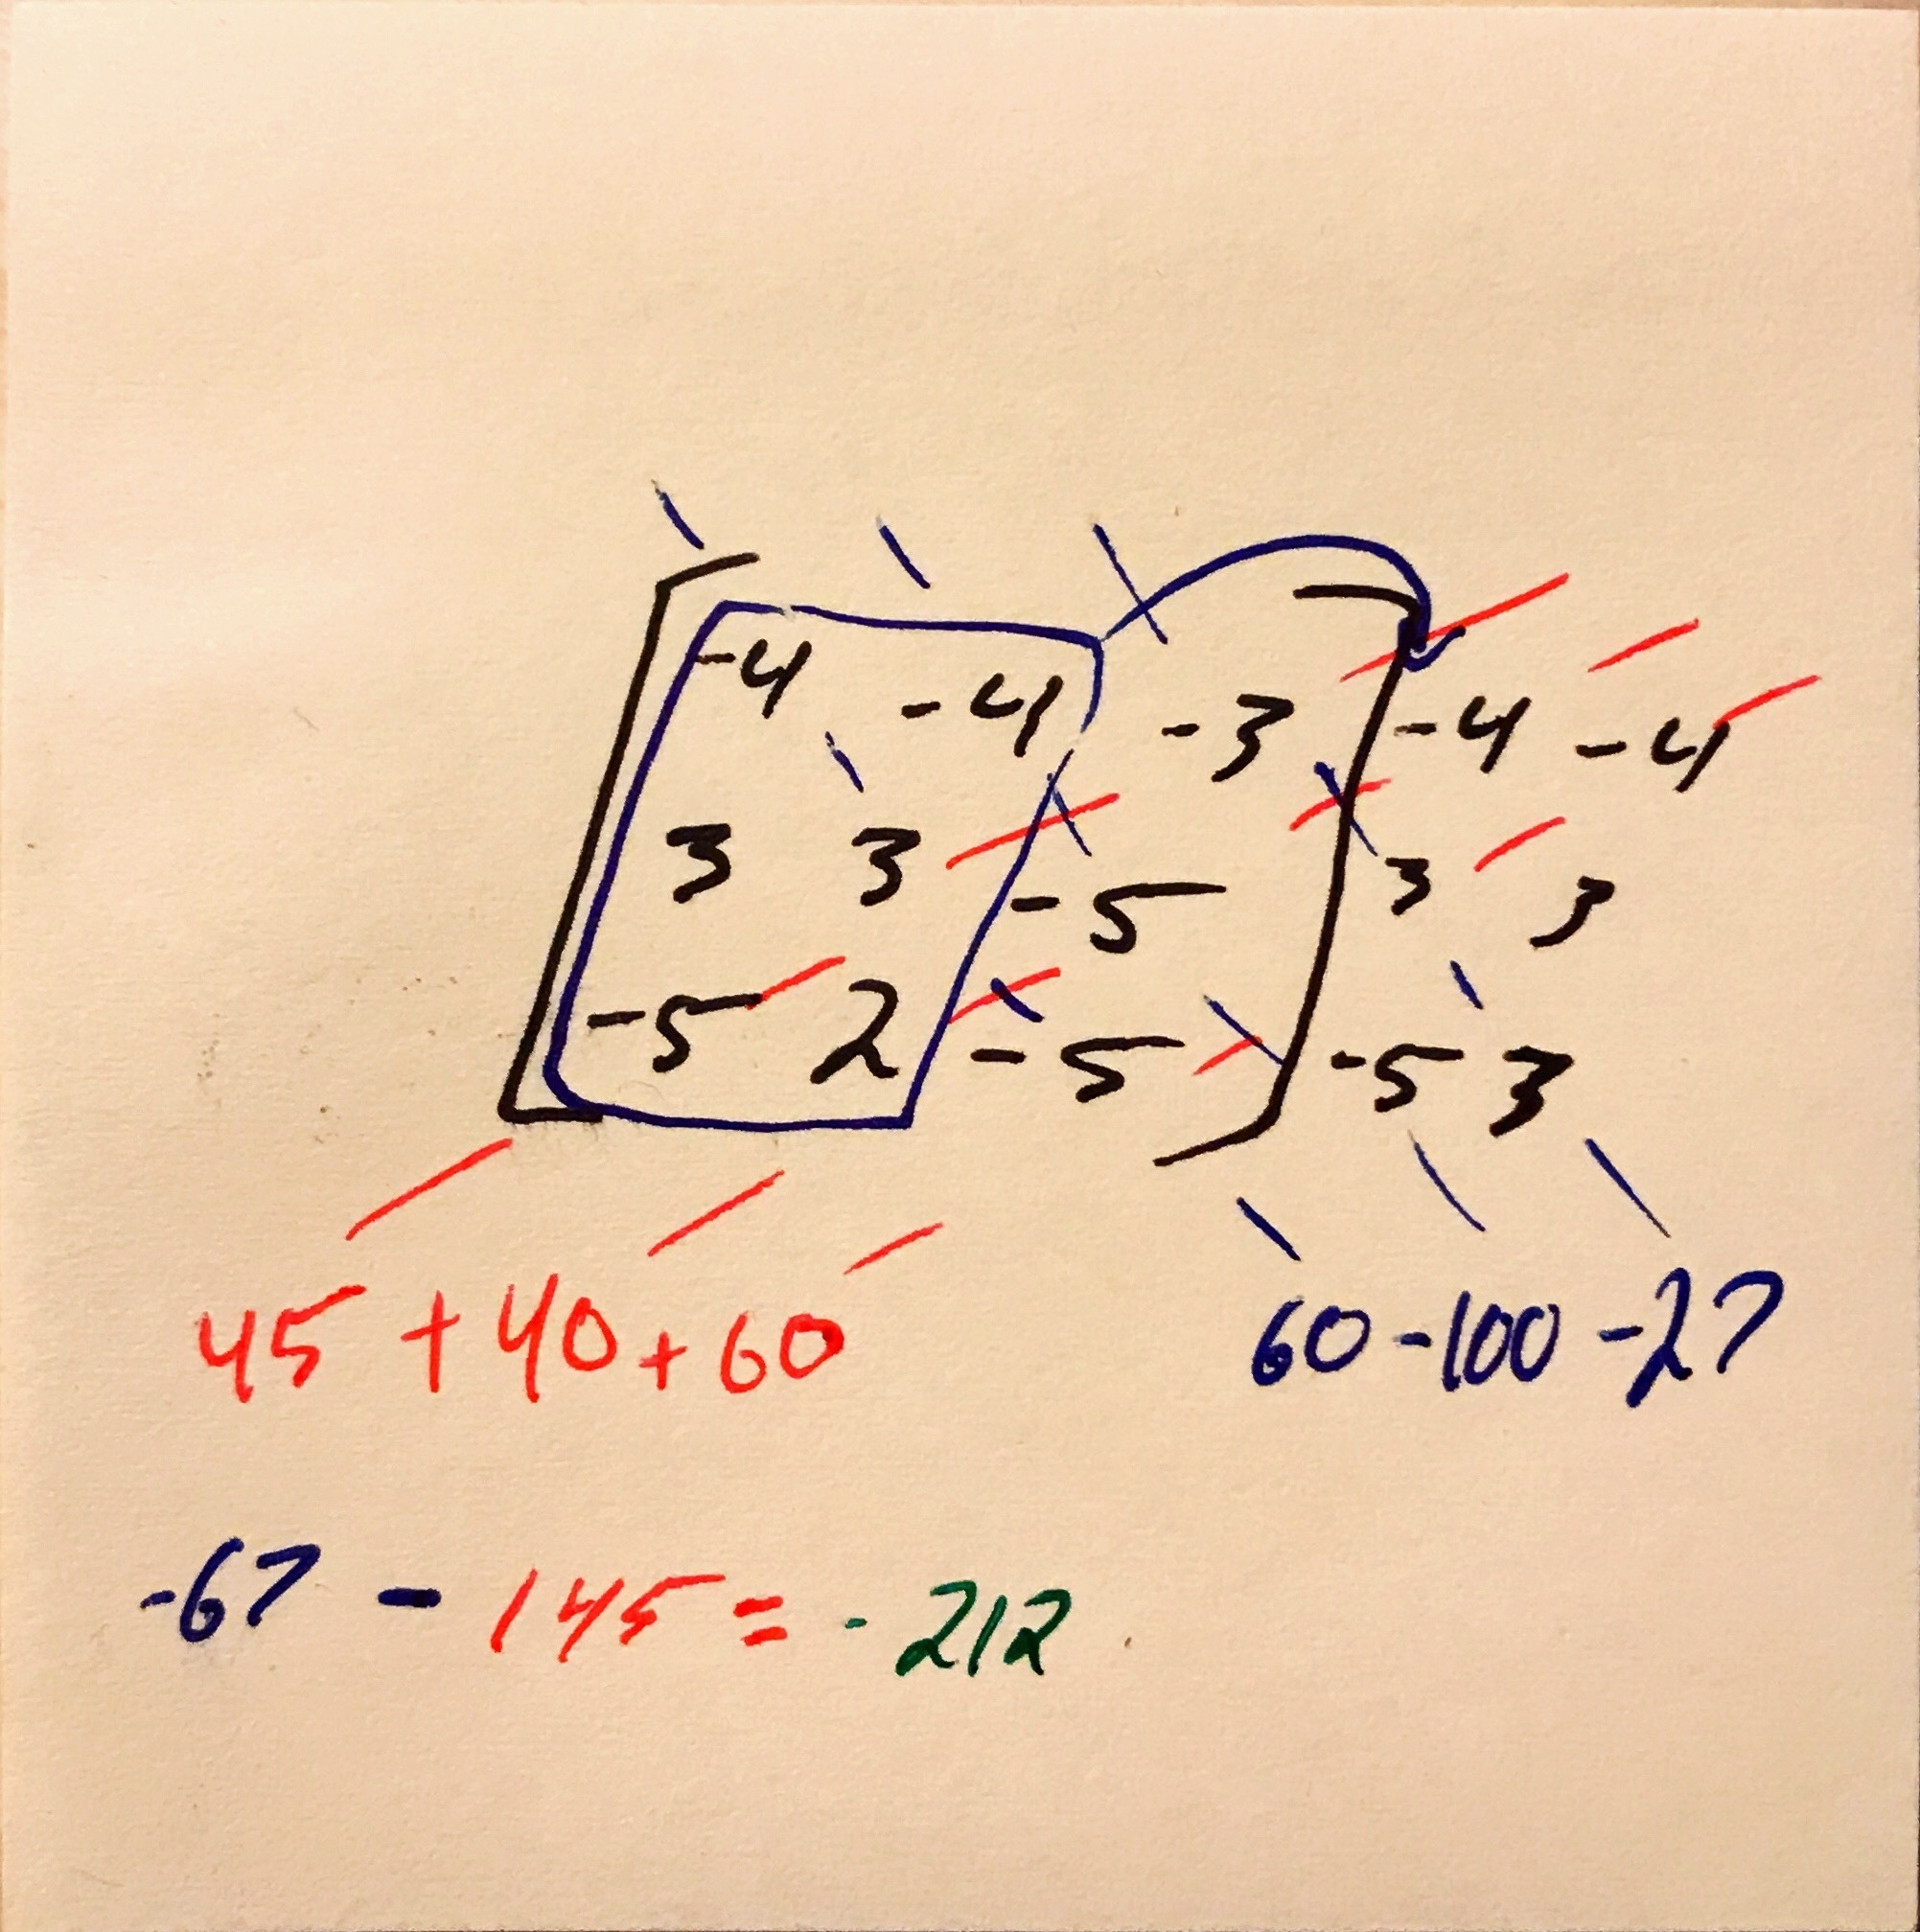 -4 -4 -3 -4 -4
3 3 -5 3 3
-5 2 -5 -5 3
45 + 40 + 60 60 -100 -27
-67 - 145 = -212